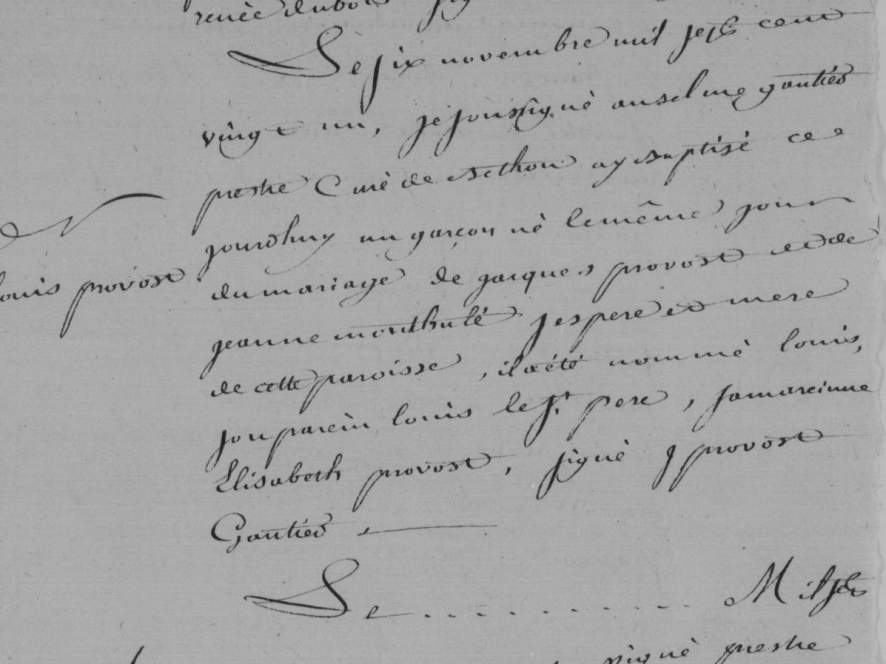 renée dubois
Le six novembre mil sept cent
vingt un, je soussigné anselme gautier
prestre Curé de Bethon ay baptisé ce
jourdhuy un garçon né le même jour
N
louis provost
du mariage de jacques provost et de
jeanne monthulé ses pere et mere
de cette paroisse, il a été nommé louis,
son parein louis le pere, sa mareinne
Elisabeth provost, signé j provost
Gautier
Le .......... Mil sept
signé prestre